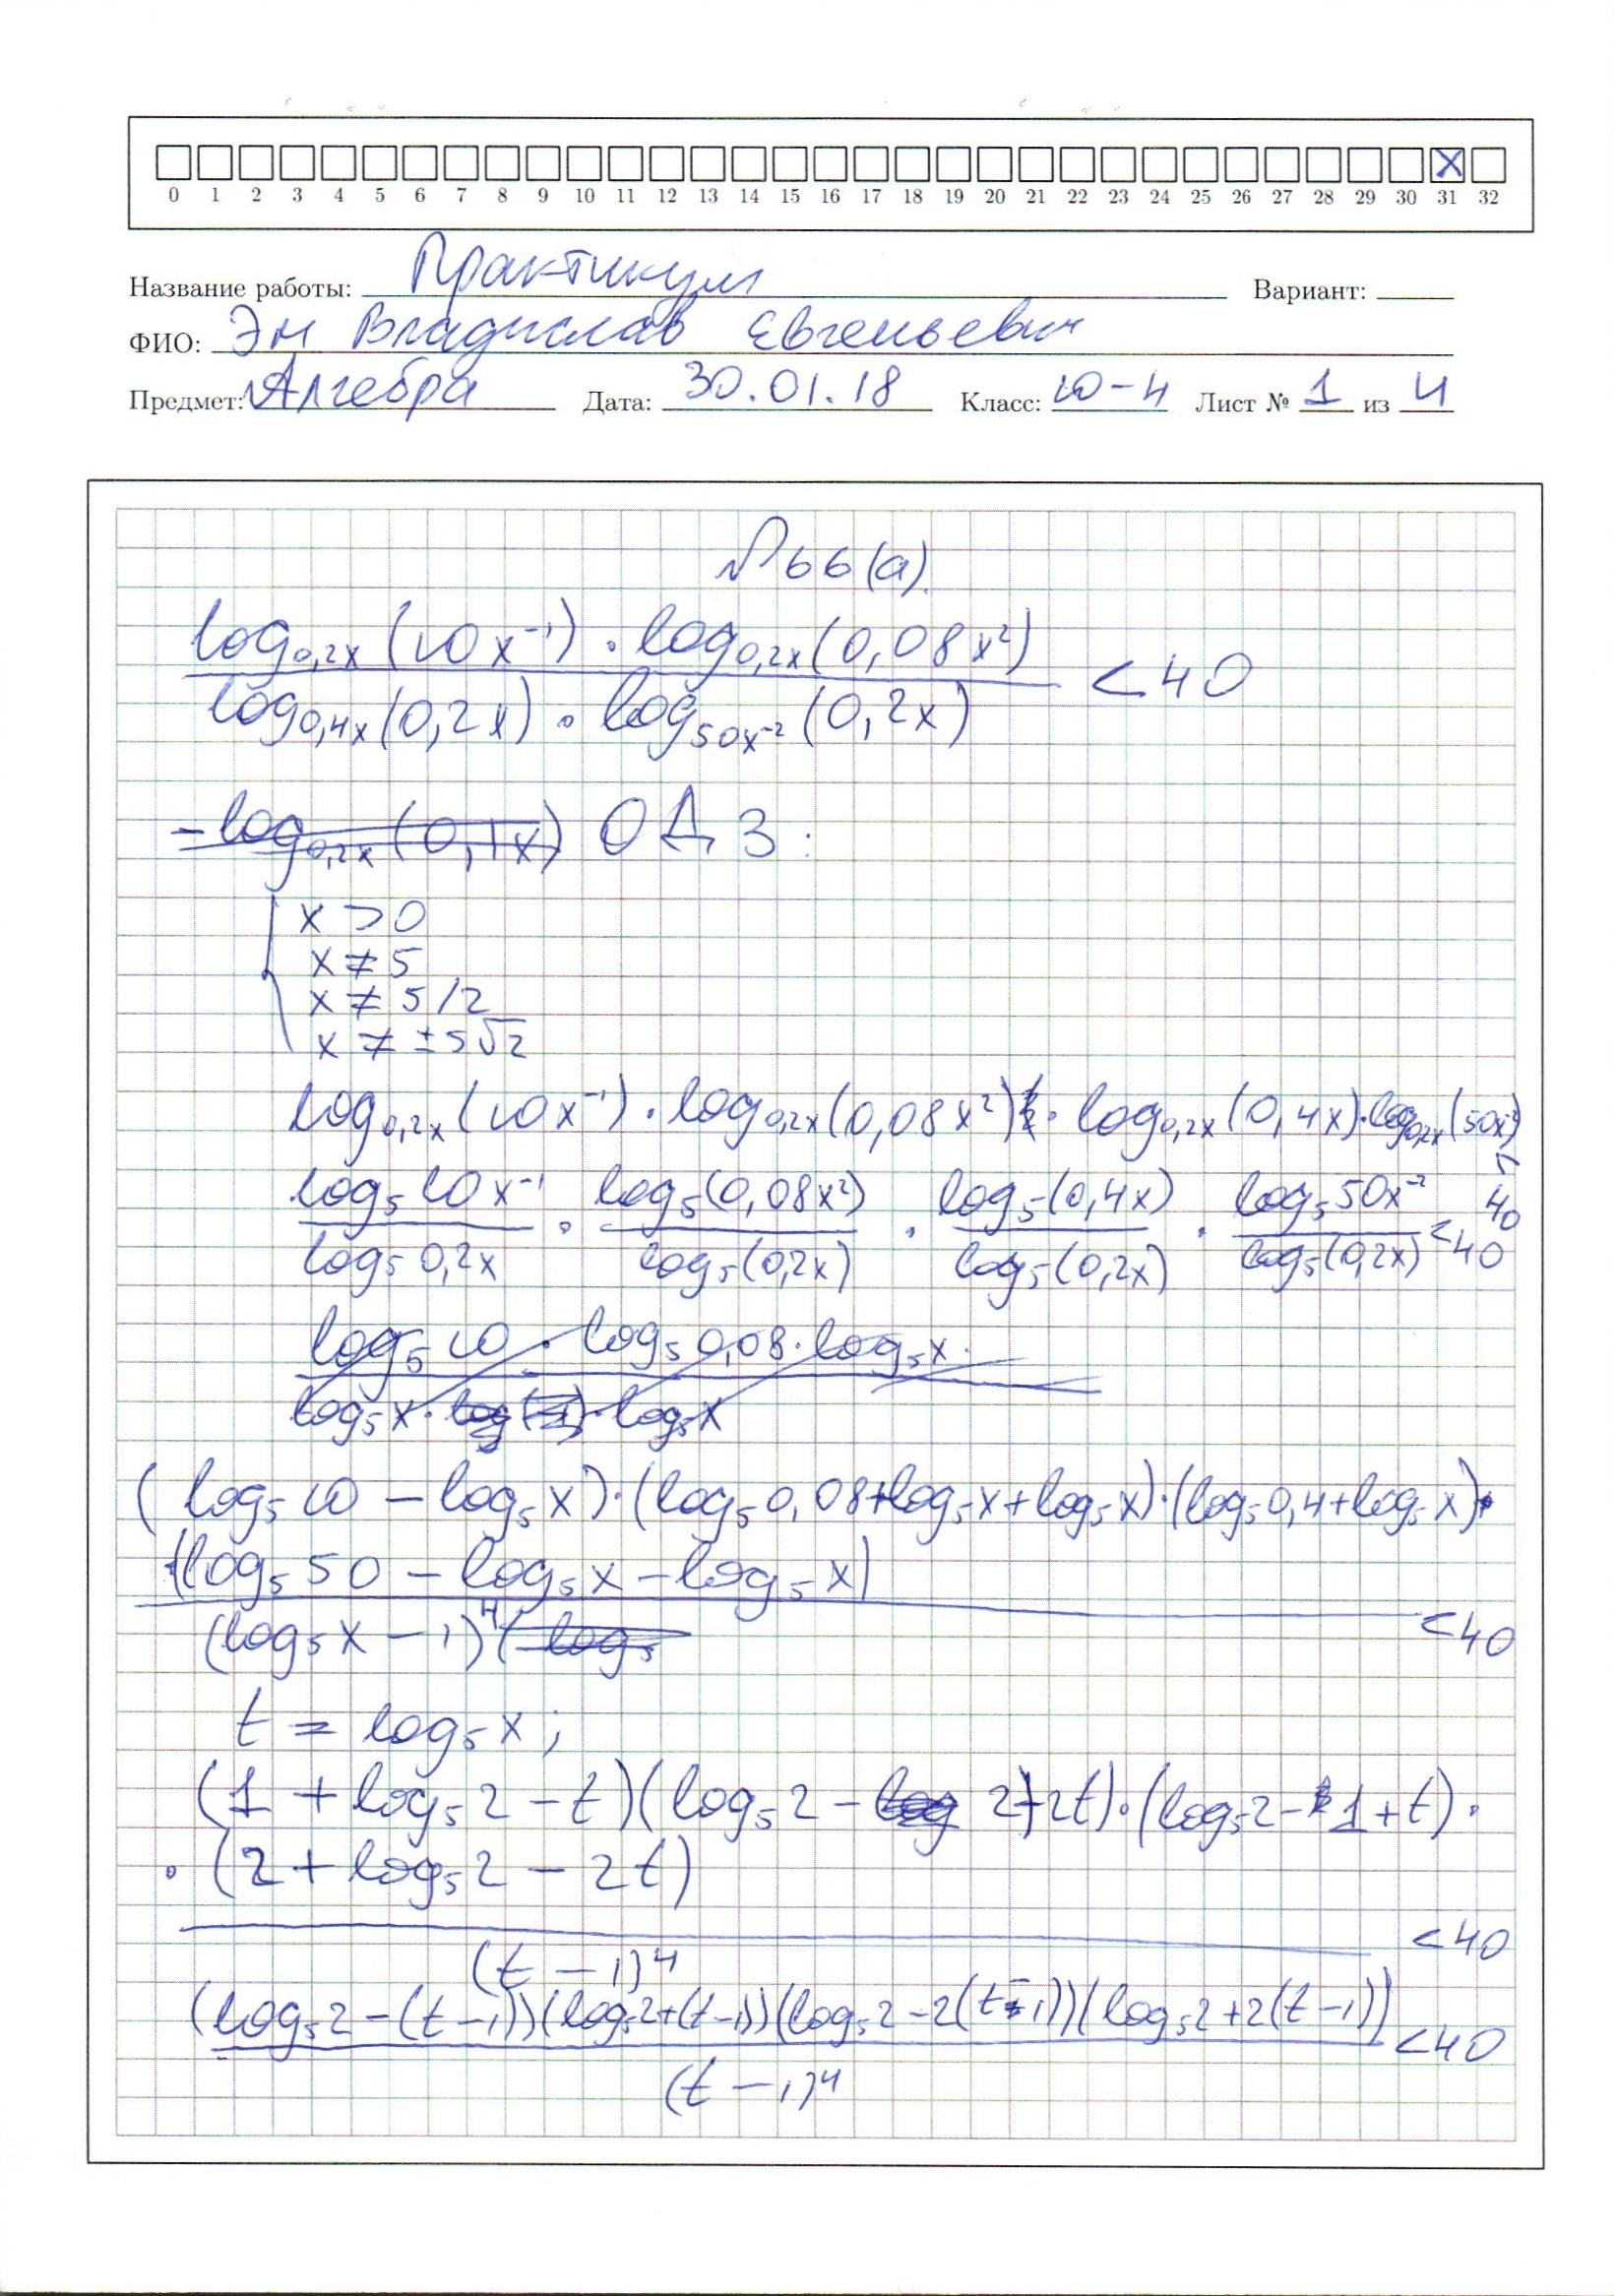 0 1 2 3 4 5 6 7 8 9 10 11 12 13 14 15 16 17 18 19 20 21 22 23 24 25 26 27 28 29 30 31 32
Название работы: Практикум Вариант:
ФИО: Эм Владислав Евгеньевич
Предмет: Алгебра Дата: 30.01.18 Класс: 10-4 Лист № 1 из 4
№66(а).
log₀,₂ₓ(10x⁻¹) · log₀,₂ₓ(0,08x²)
< 40
log₀,₄ₓ(0,2x) · log₅₀ₓ⁻²(0,2x)
-log₀,₂ₓ(0,1x) ОДЗ:
x > 0
x ≠ 5
x ≠ 5/2
x ≠ ±5√2
log₀,₂ₓ(10x⁻¹) · log₀,₂ₓ(0,08x²) · log₀,₂ₓ(0,4x) · log₀,₂ₓ(50x⁻²) < 40
log₅10x⁻¹ · log₅(0,08x²) · log₅(0,4x) · log₅50x⁻² < 40
log₅0,2x log₅(0,2x) log₅(0,2x) log₅(0,2x)
log₅10 · log₅0,08 · log₅x ·
log₅x · log₅x
(log₅10 - log₅x) · (log₅0,08 + log₅x + log₅x) · (log₅0,4 + log₅x) ·
(log₅50 - log₅x - log₅x)
< 40
(log₅x - 1)⁴ (log₅
t = log₅x;
(1 + log₅2 - t)(log₅2 - 2 + 2t) · (log₅2 - 1 + t) ·
· (2 + log₅2 - 2t)
< 40
(t - 1)⁴
(log₅2 - (t - 1))(log₅2 + (t - 1))(log₅2 - 2(t - 1))(log₅2 + 2(t - 1)) < 40
(t - 1)⁴